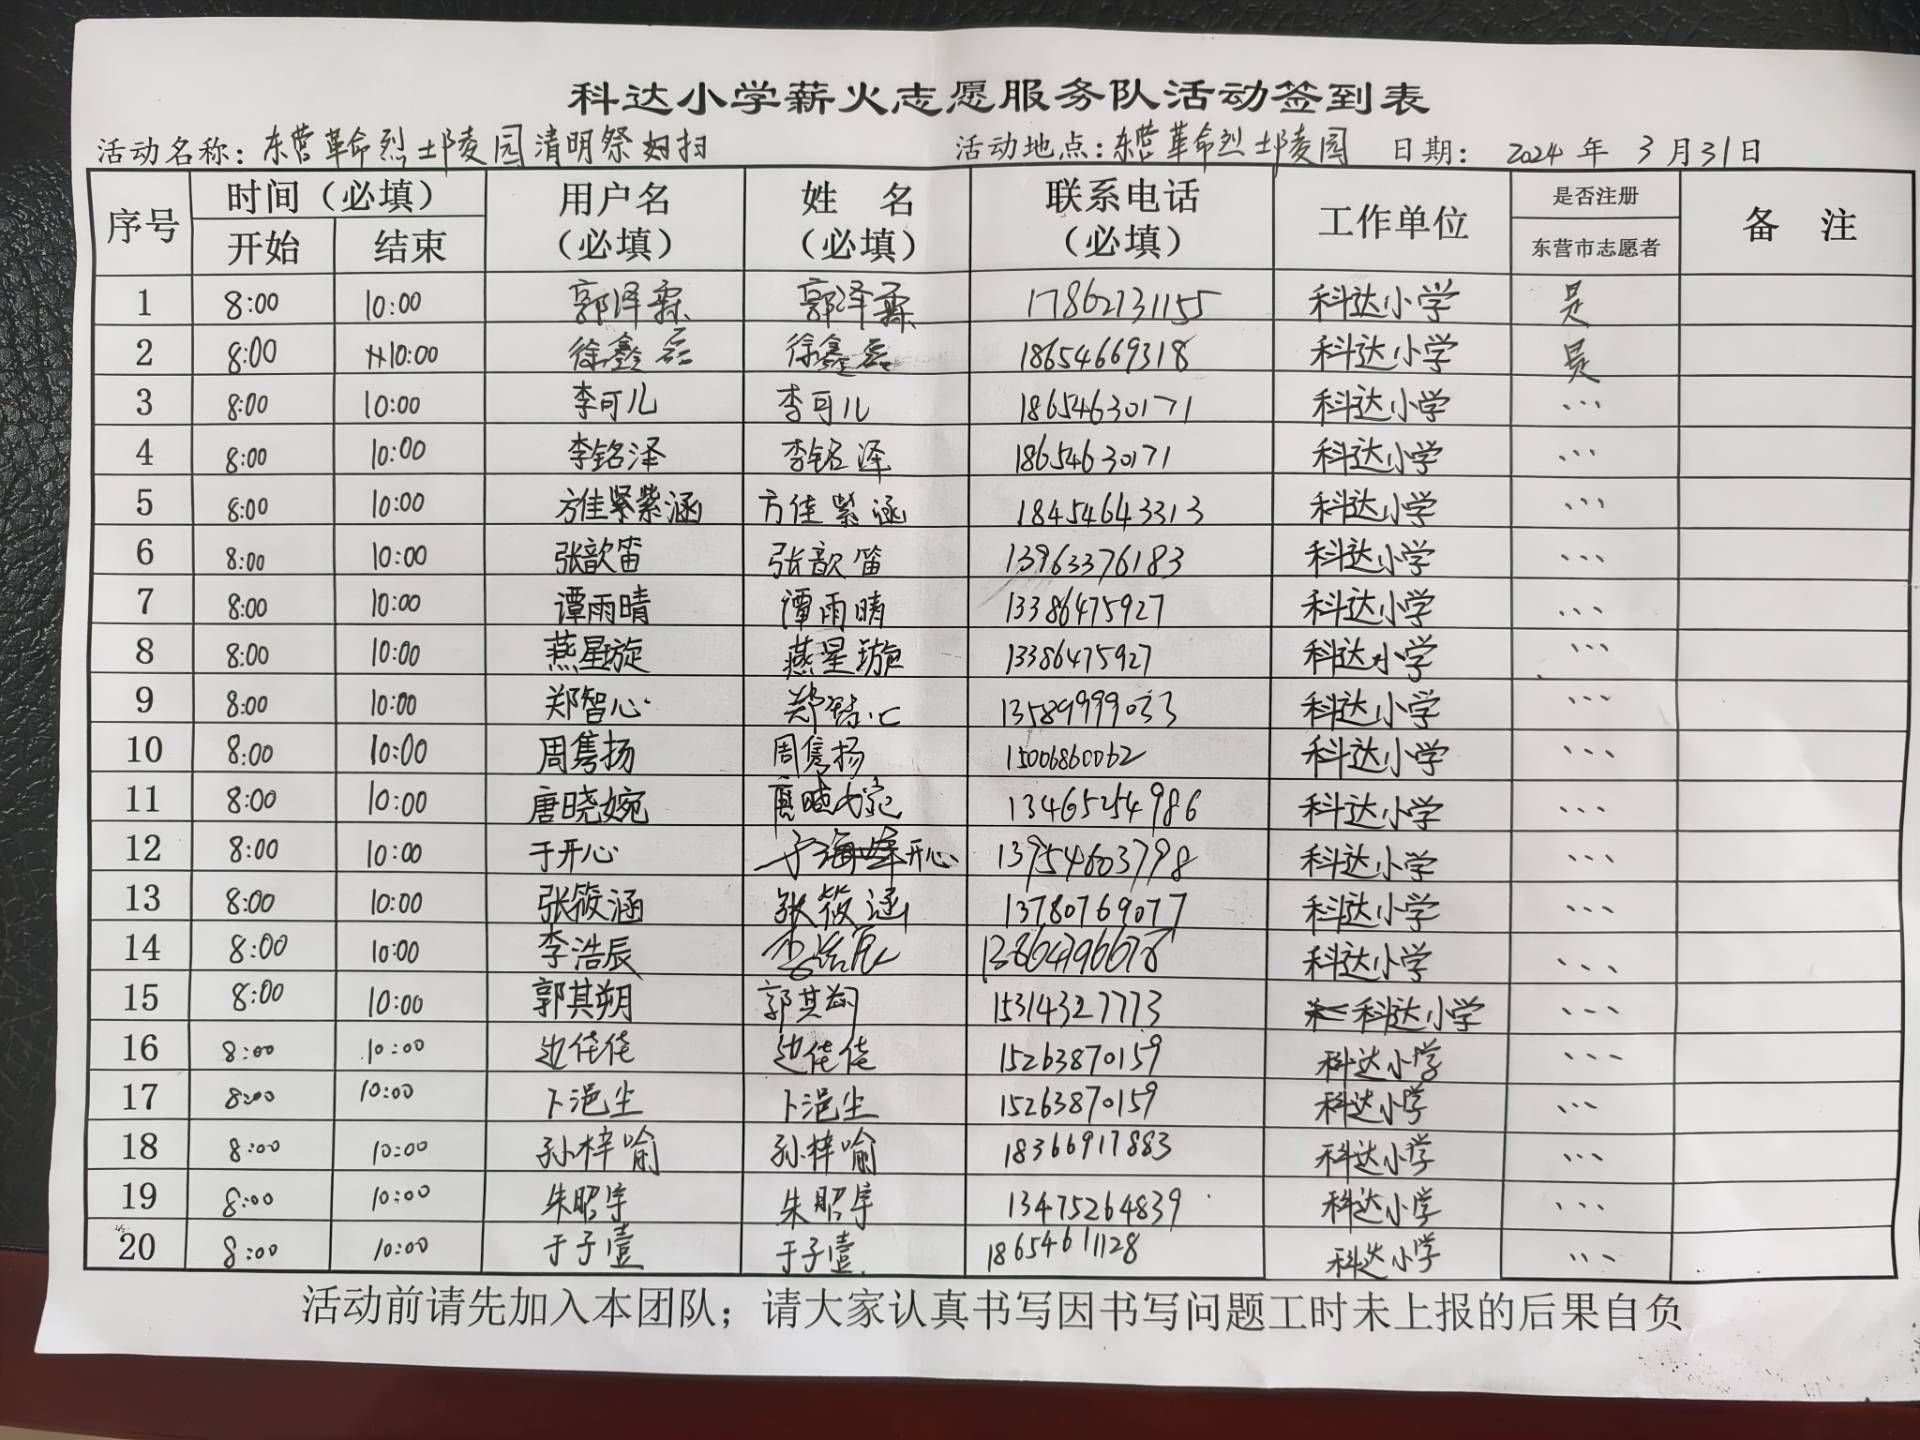 科达小学薪火志愿服务队活动签到表
活动名称：东营革命烈士陵园清明祭扫 活动地点：东营革命烈士陵园 日期： 2024 年 3 月 31 日
序号 时间（必填） 用户名（必填） 姓 名（必填） 联系电话（必填） 工作单位 是否注册 备 注
开始 结束 东营市志愿者
1 8:00 10:00 郭泽霖 郭泽霖 17862731155 科达小学 是
2 8:00 10:00 徐鑫磊 徐鑫磊 18654669318 科达小学 是
3 8:00 10:00 李可儿 李可儿 18654630171 科达小学 、、、
4 8:00 10:00 李铭泽 李铭泽 18654630171 科达小学 、、、
5 8:00 10:00 方佳紫涵 方佳紫涵 18454643313 科达小学 、、、
6 8:00 10:00 张歆笛 张歆笛 13963376183 科达小学 、、、
7 8:00 10:00 谭雨晴 谭雨晴 13386475927 科达小学 、、、
8 8:00 10:00 燕星璇 燕星璇 13386475927 科达小学 、、、
9 8:00 10:00 郑智心 郑智心 13589999033 科达小学 、、、
10 8:00 10:00 周隽扬 周隽扬 15006860062 科达小学 、、、
11 8:00 10:00 唐晓婉 唐晓婉 13465254986 科达小学 、、、
12 8:00 10:00 于开心 于开心 13954603798 科达小学 、、、
13 8:00 10:00 张筱涵 张筱涵 13780769077 科达小学 、、、
14 8:00 10:00 李浩辰 李浩辰 科达小学 、、、
15 8:00 10:00 郭其朔 郭其朔 15314327773 科达小学 、、、
16 8:00 10:00 边佳佳 边佳佳 15263870159 科达小学 、、、
17 8:00 10:00 卜浥尘 卜浥尘 15263870159 科达小学 、、、
18 8:00 10:00 孙梓喻 孙梓喻 18366917883 科达小学 、、、
19 8:00 10:00 朱昭宇 朱昭宇 13475264839 科达小学 、、、
20 8:00 10:00 于子壹 于子壹 18654611128 科达小学 、、、
活动前请先加入本团队；请大家认真书写因书写问题工时未上报的后果自负